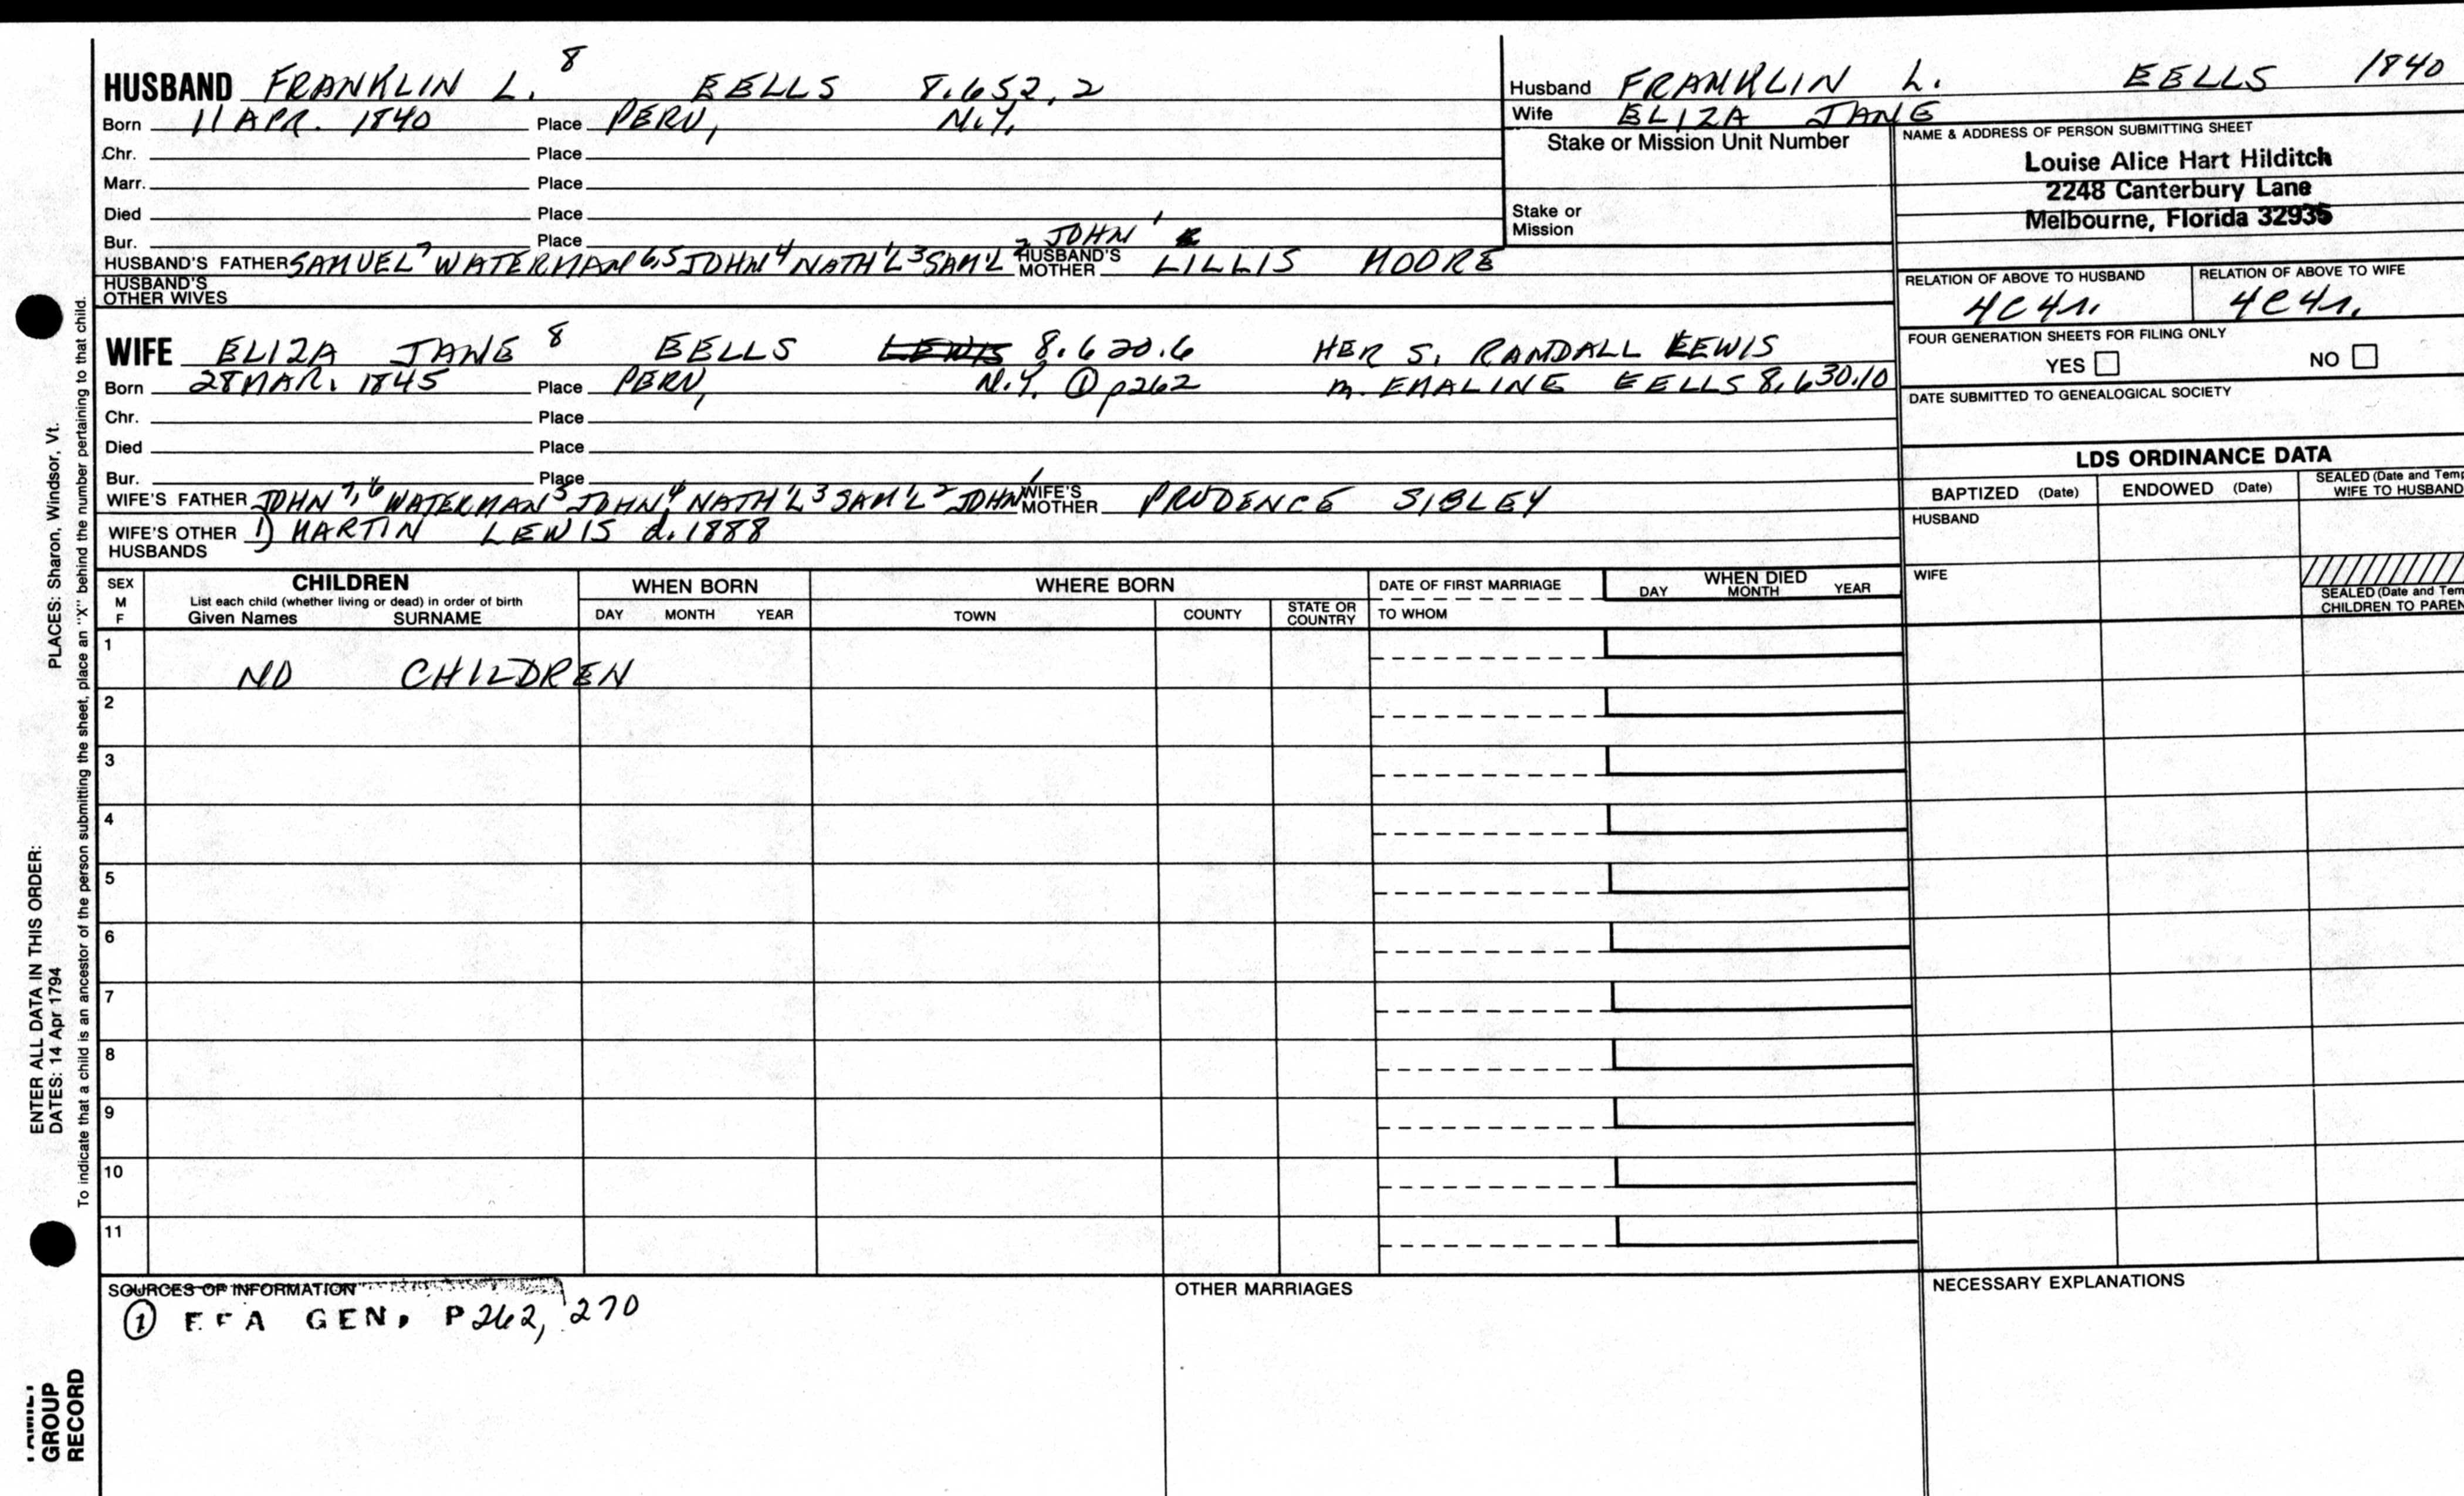 HUSBAND FRANKLIN L. 8 EELLS 8.652.2
Born 11 APR. 1840 Place PERU, N.Y.
Chr. Place
Marr. Place
Died Place
Bur. Place
HUSBAND'S FATHER SAMUEL 7 WATERMAN 6,5 JOHN 4 NATH'L 3 SAM'L 2 JOHN 1 HUSBAND'S MOTHER LILLIS MOORE
HUSBAND'S OTHER WIVES
WIFE ELIZA JANE 8 EELLS LEWIS 8.620.6 HER S. RANDALL LEWIS
Born 28 MAR. 1845 Place PERU, N.Y. ① p262 m. EMALINE EELLS 8.630.10
Chr. Place
Died Place
Bur. Place
WIFE'S FATHER JOHN 7,6 WATERMAN 5 JOHN 4 NATH'L 3 SAM'L 2 JOHN 1 WIFE'S MOTHER PRUDENCE SIBLEY
WIFE'S OTHER HUSBANDS 1) MARTIN LEWIS d. 1888
Husband FRANKLIN L. EELLS 1840
Wife ELIZA JANE
Stake or Mission Unit Number
Stake or Mission
NAME & ADDRESS OF PERSON SUBMITTING SHEET
Louise Alice Hart Hilditch
2248 Canterbury Lane
Melbourne, Florida 32935
RELATION OF ABOVE TO HUSBAND RELATION OF ABOVE TO WIFE
4C4r. 4C4r.
FOUR GENERATION SHEETS FOR FILING ONLY
YES NO
DATE SUBMITTED TO GENEALOGICAL SOCIETY
LDS ORDINANCE DATA
BAPTIZED (Date) ENDOWED (Date) SEALED (Date and Tem WIFE TO HUSBAND
HUSBAND
WIFE
SEALED (Date and Tem
CHILDREN TO PAREN
SEX M F
CHILDREN
List each child (whether living or dead) in order of birth
Given Names SURNAME
WHEN BORN
DAY MONTH YEAR
WHERE BORN
TOWN COUNTY STATE OR COUNTRY
DATE OF FIRST MARRIAGE
TO WHOM
WHEN DIED
DAY MONTH YEAR
1 NO CHILDREN
2
3
4
5
6
7
8
9
10
11
SOURCES OF INFORMATION
① GEN. P262, 270
OTHER MARRIAGES
NECESSARY EXPLANATIONS
ENTER ALL DATA IN THIS ORDER:
DATES: 14 Apr 1794 PLACES: Sharon, Windsor, Vt.
To indicate that a child is an ancestor of the person submitting the sheet, place an "X" behind the number pertaining to that child.
GROUP
RECORD